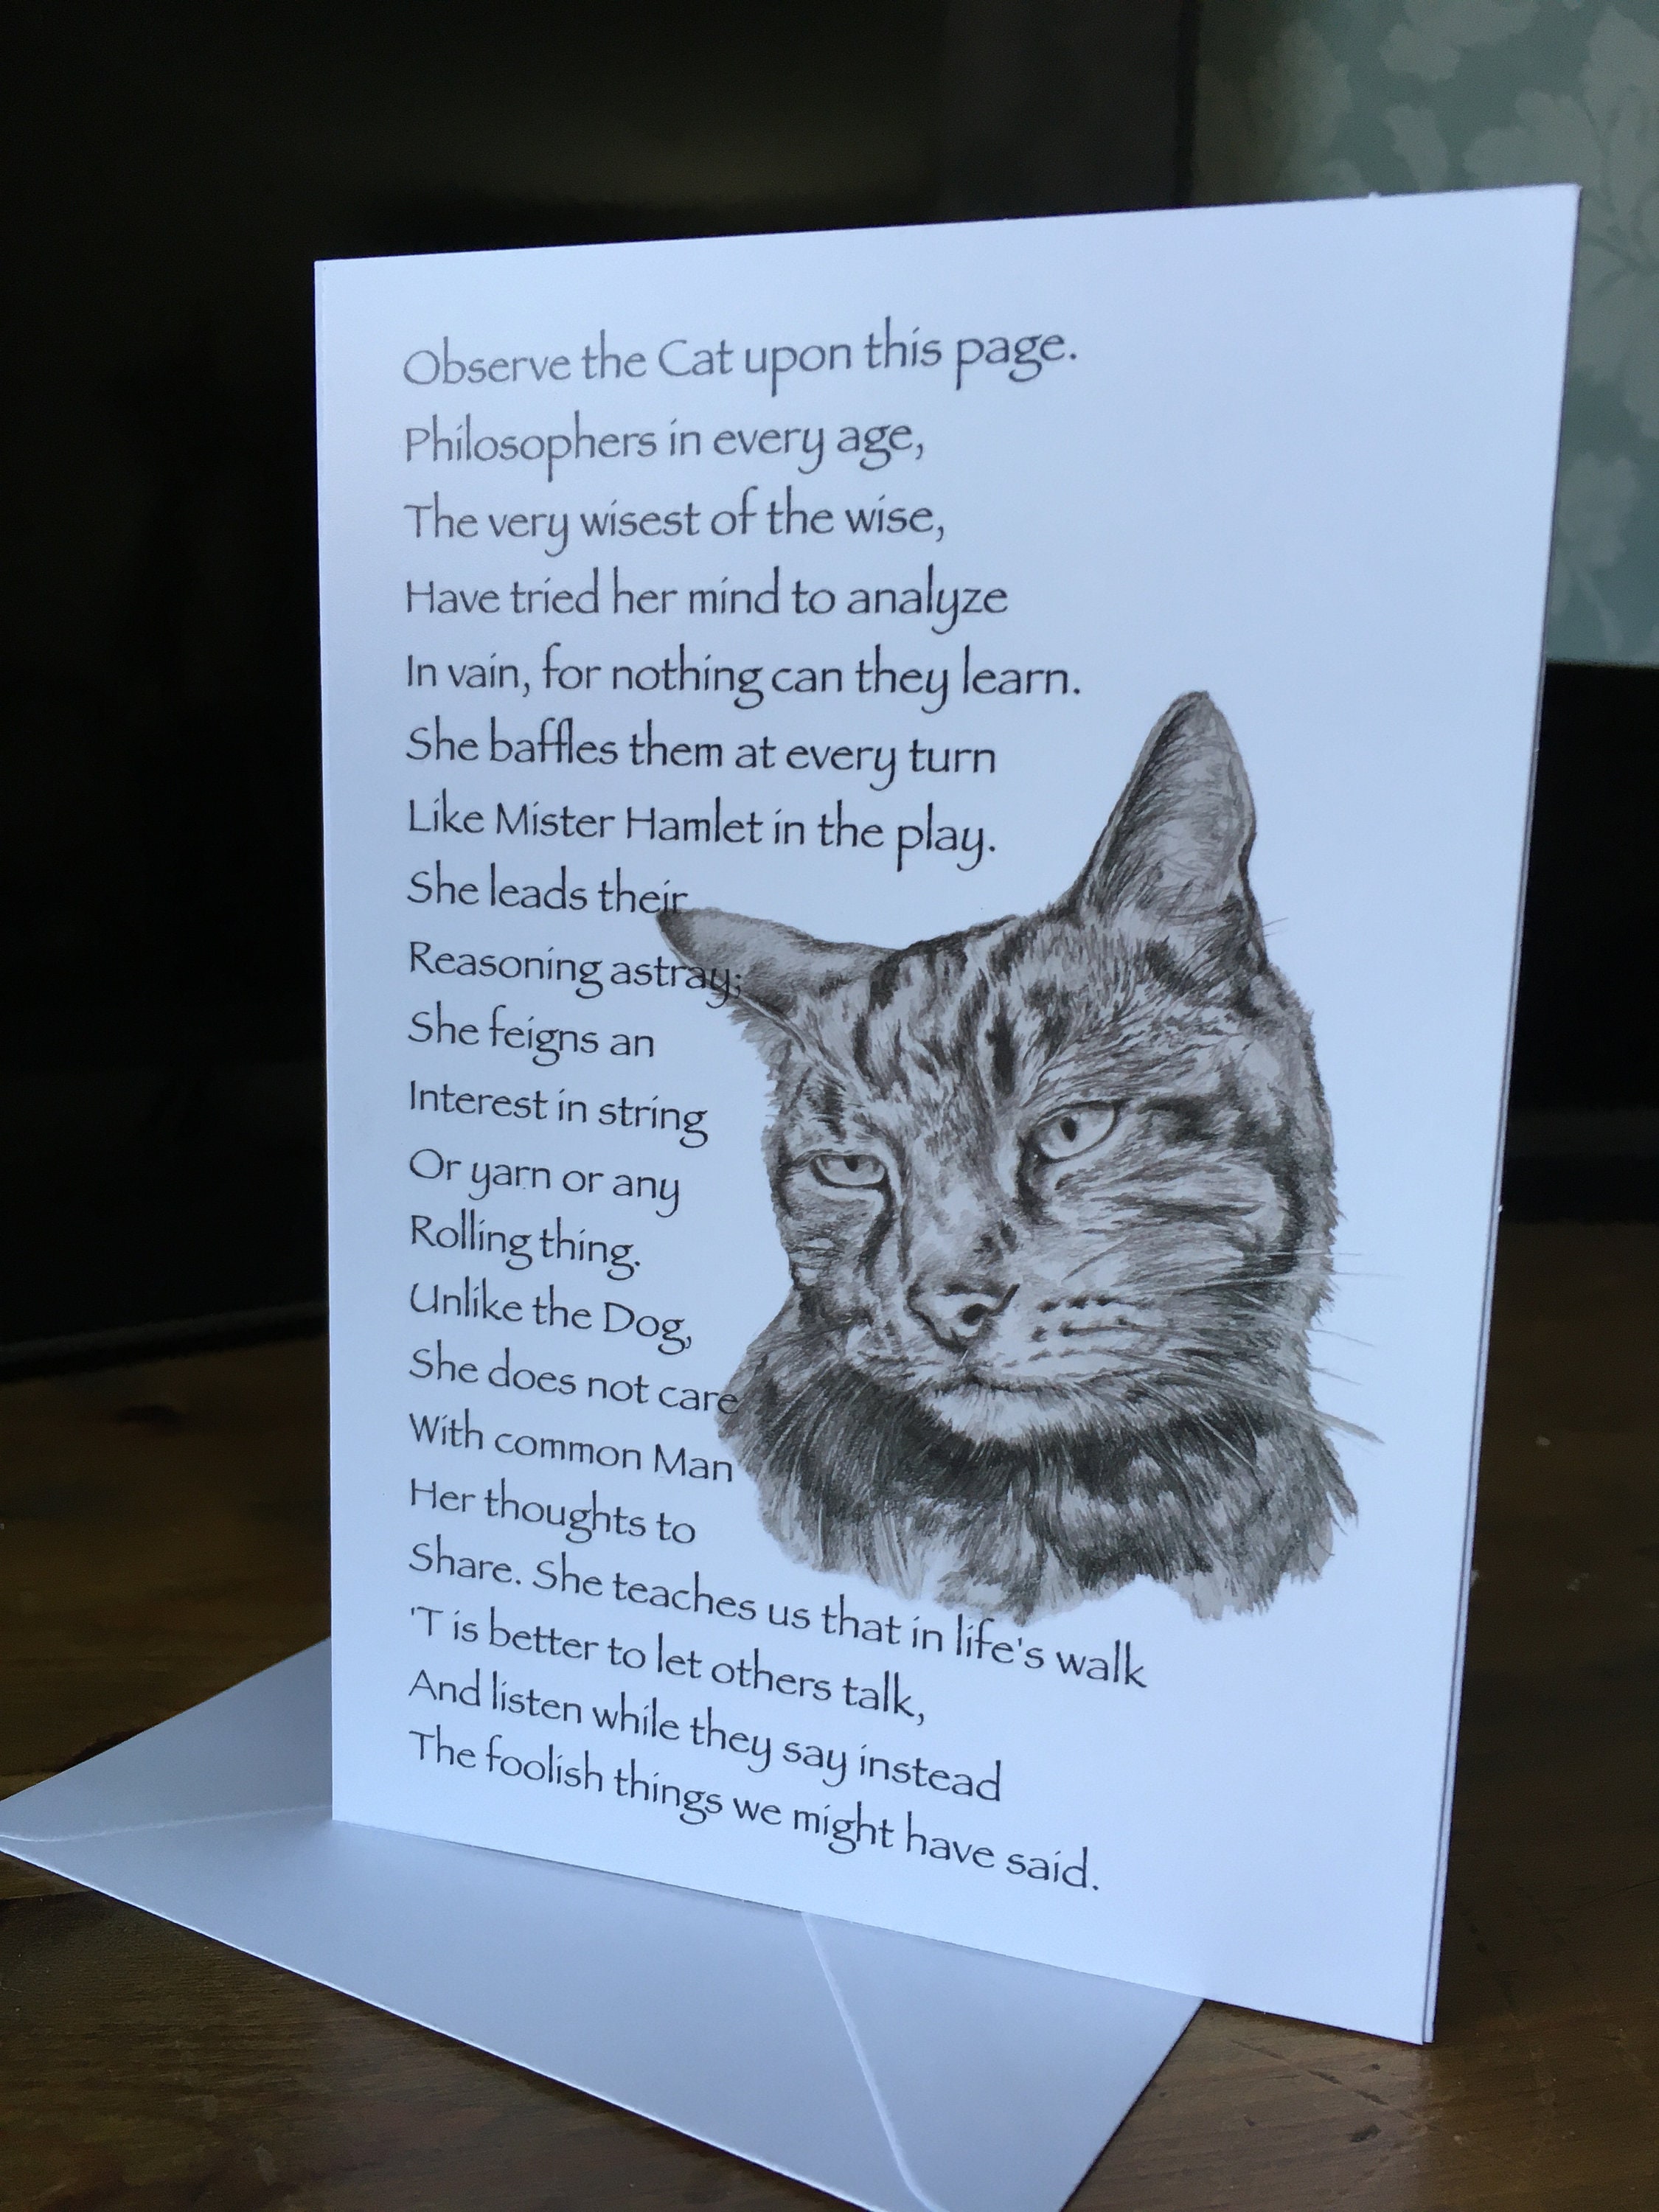 Observe the Cat upon this page.
Philosophers in every age,
The very wisest of the wise,
Have tried her mind to analyze
In vain, for nothing can they learn.
She baffles them at every turn
Like Mister Hamlet in the play.
She leads their
Reasoning astray;
She feigns an
Interest in string
Or yarn or any
Rolling thing.
Unlike the Dog,
She does not care
With common Man
Her thoughts to
Share. She teaches us that in life's walk
'T is better to let others talk,
And listen while they say instead
The foolish things we might have said.